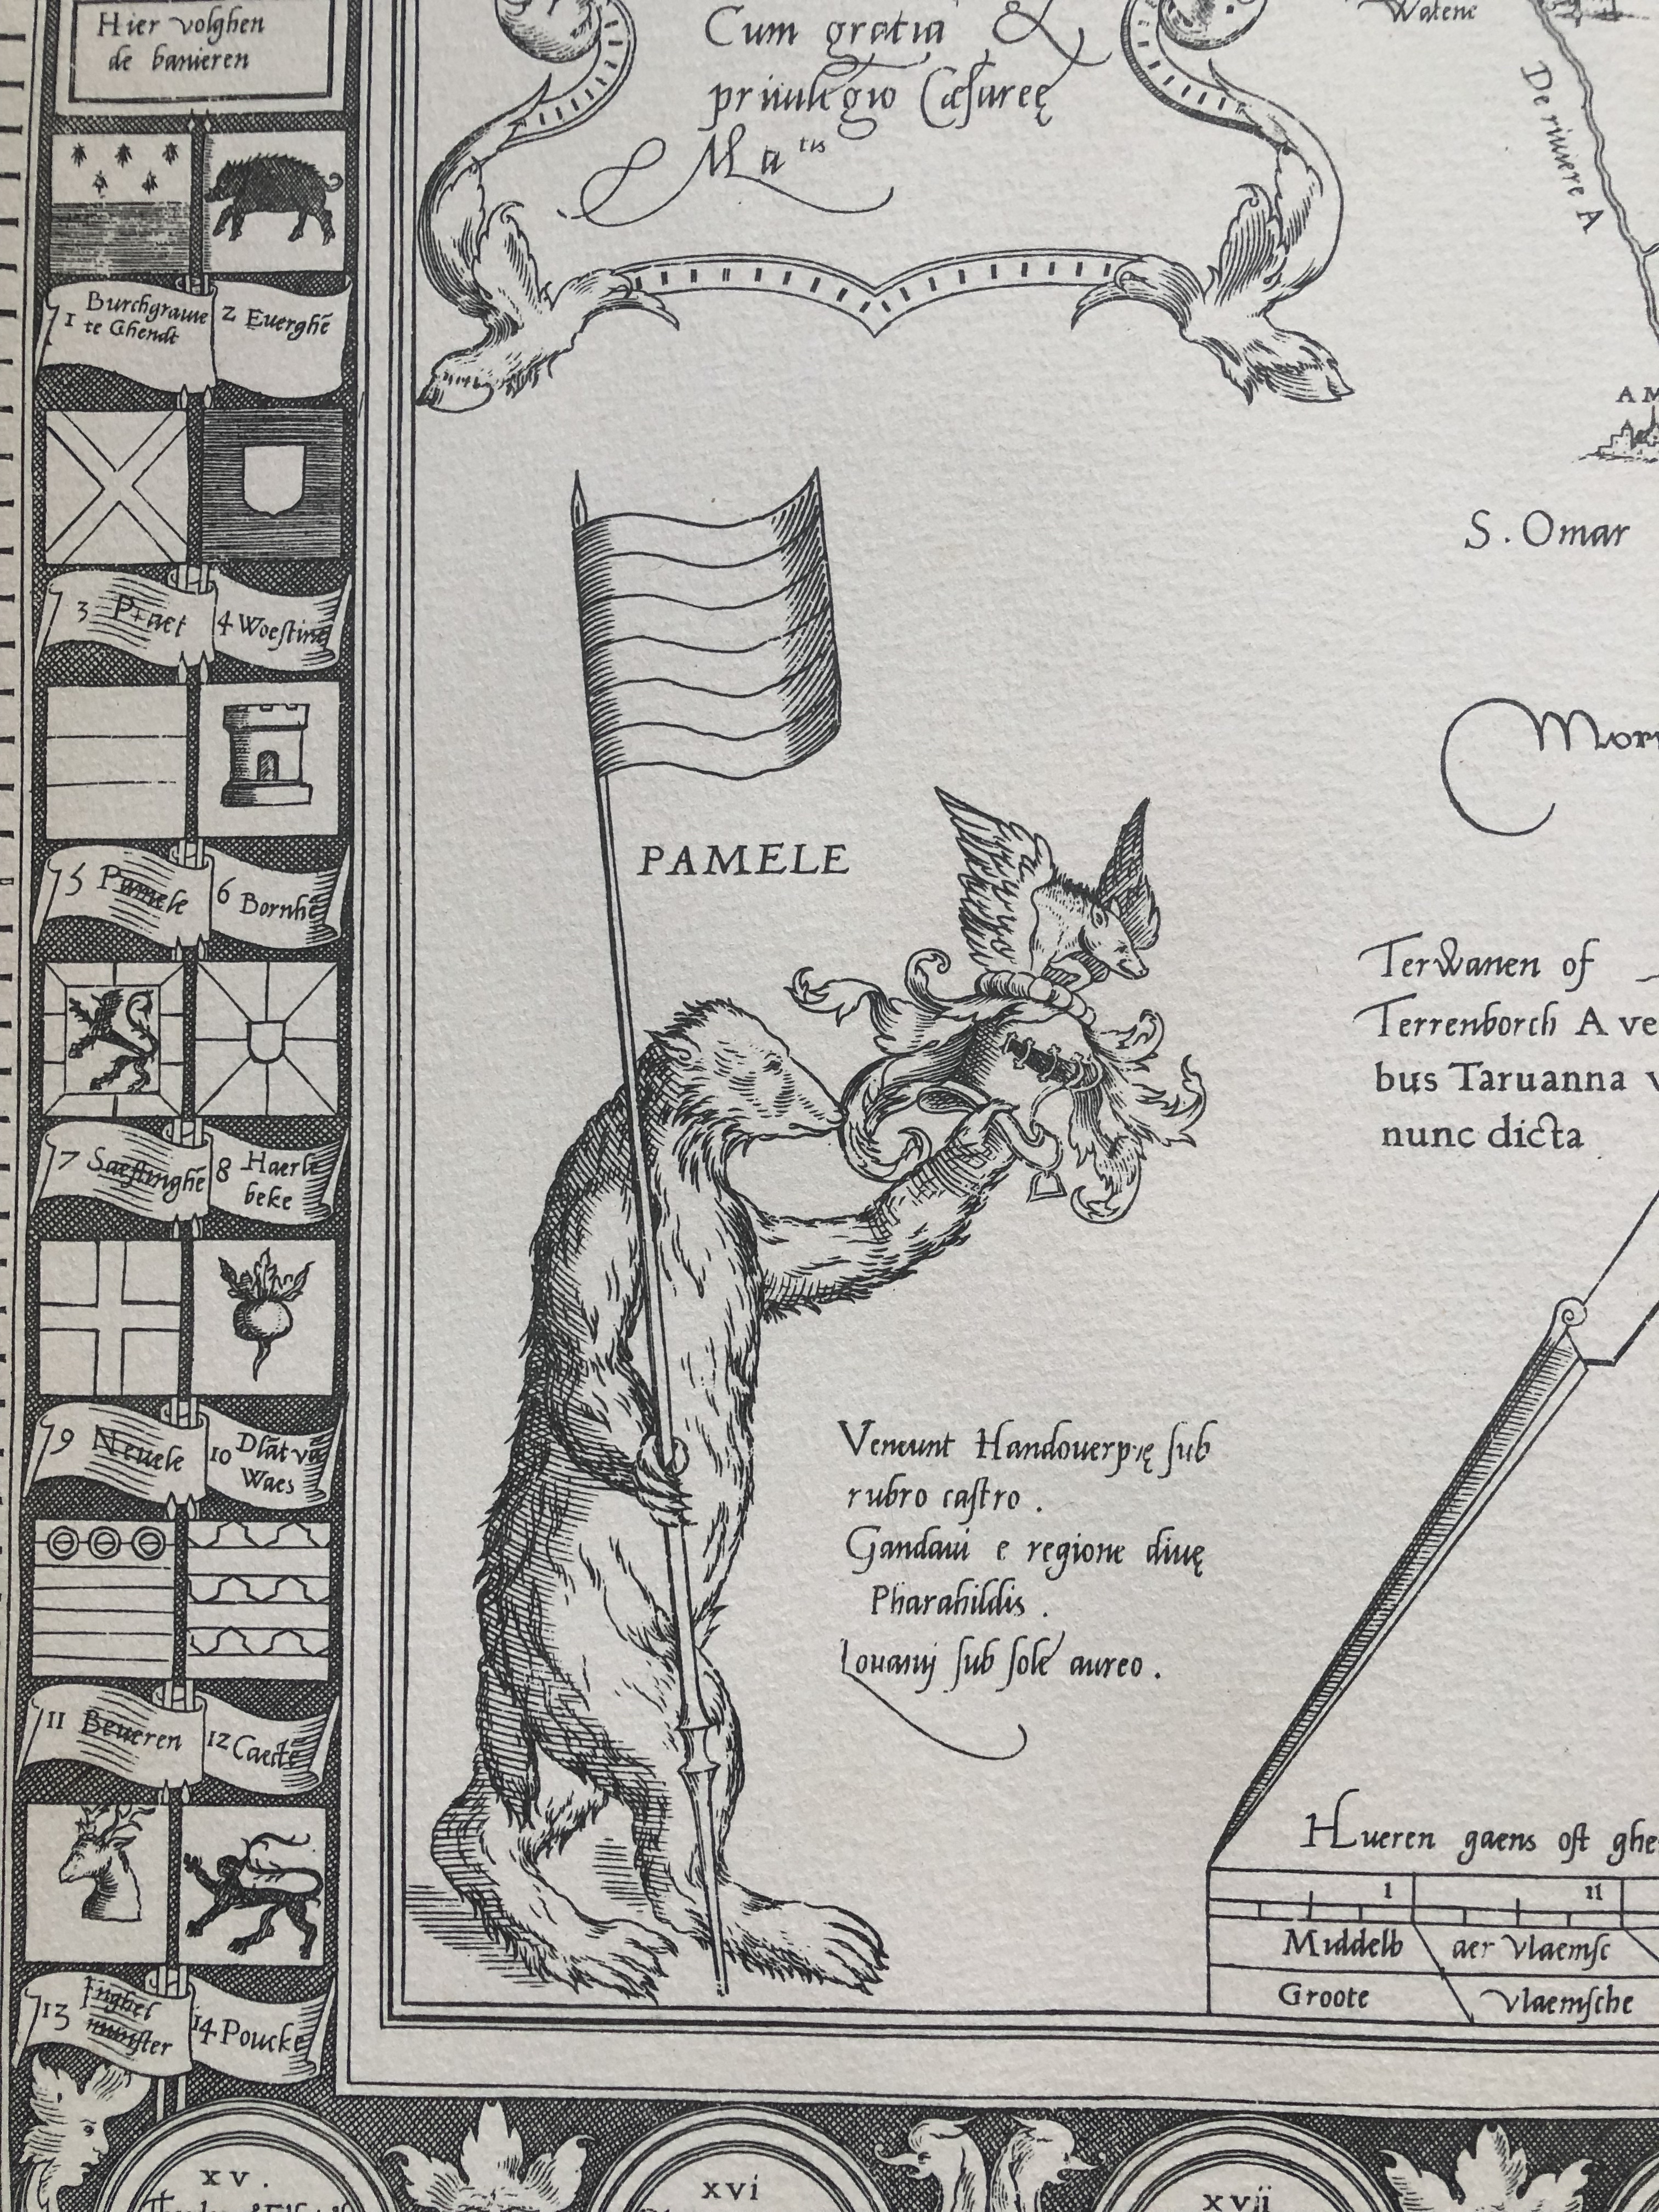 Hier volghen
de banieren
Cum gratia &
priuilegio Cæsareę
Ma tis
Watene
De riuiere A
1 Burchgraue
te Ghendt
2 Euerghē
3 Praet
4 Woestine
5 Pamele
6 Bornhē
7 Saeftinghē
8 Haerle
beke
9 Neuele
10 Dlāt vā
Waes
11 Beueren
12 Caette
13 Inghel
munster
14 Poucke
PAMELE
AM
S. Omar
Mori
Terwanen of
Terrenborch A ve
bus Taruanna v
nunc dicta
Veneunt Handouerpię sub
rubro castro.
Gandaui e regione diuę
Pharahildis.
Louanij sub sole aureo.
Hueren gaens oft ghe
I II
Middelb aer vlaemsc
Groote Vlaemsche
xv. xvi xvii